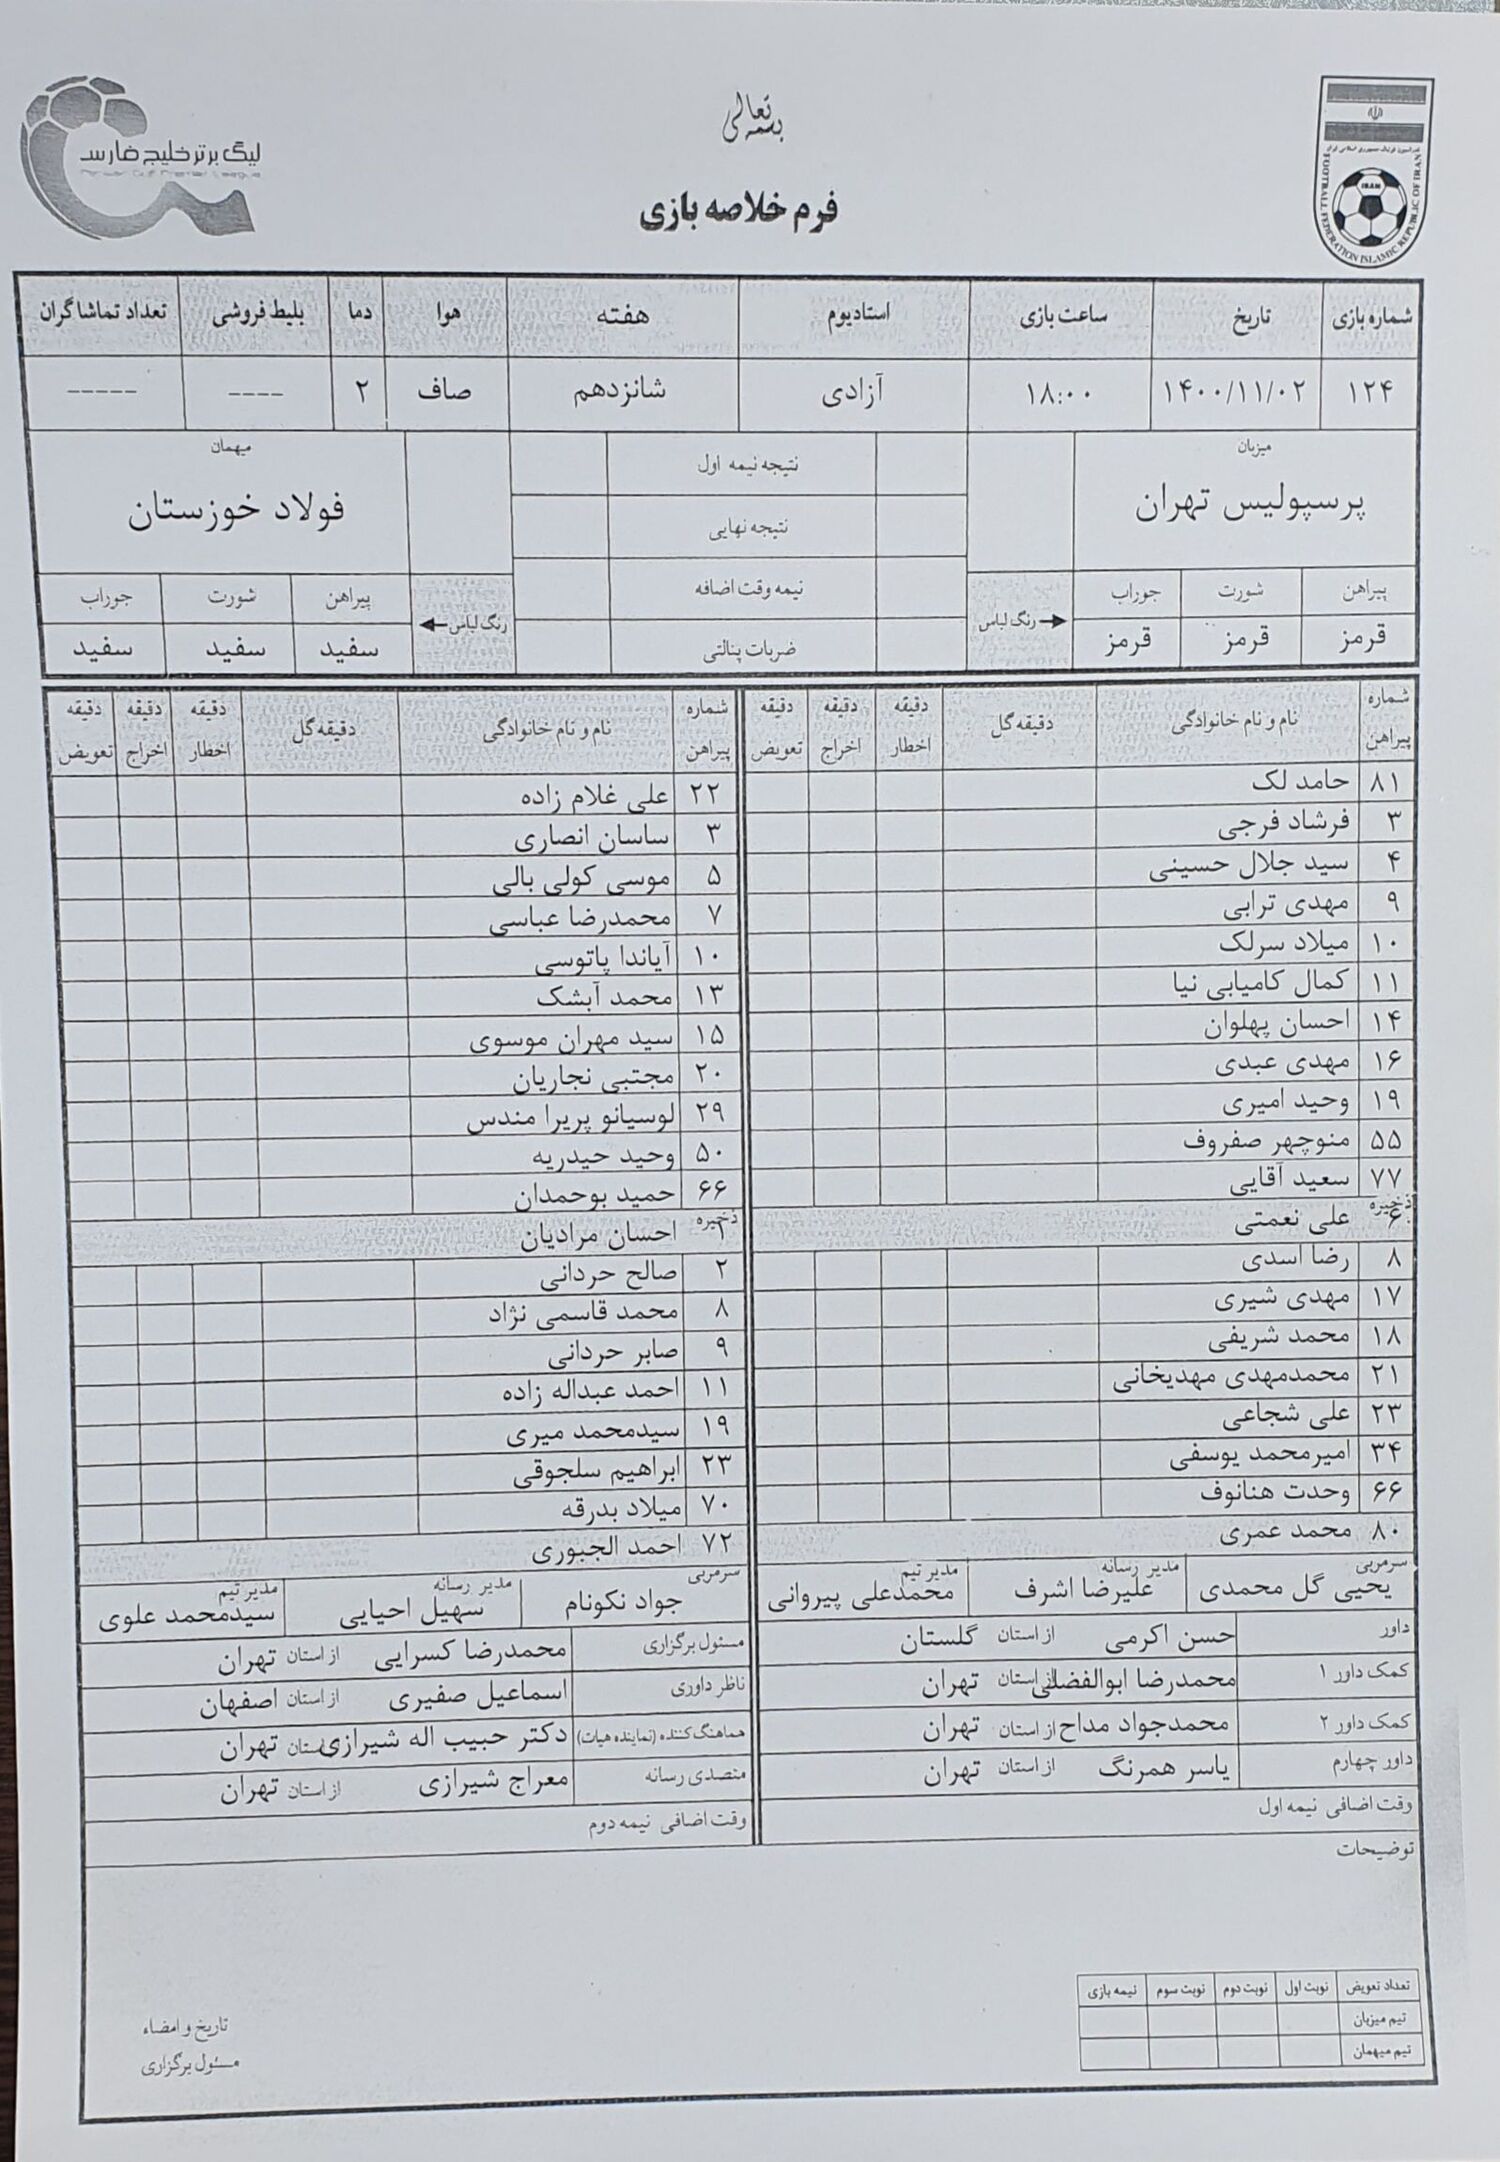 بسمه تعالی
لیگ برتر خلیج فارس
فدراسیون فوتبال جمهوری اسلامی ایران
IRAN
FOOTBALL FEDERATION ISLAMIC REPUBLIC OF IRAN
فرم خلاصه بازی
شماره بازی تاریخ ساعت بازی استادیوم هفته هوا دما بلیط فروشی تعداد تماشاگران
۱۲۴ ۱۴۰۰/۱۱/۰۲ ۱۸:۰۰ آزادی شانزدهم صاف ۲ ---- -----
میزبان
پرسپولیس تهران
پیراهن شورت جوراب
قرمز قرمز قرمز
رنگ لباس
نتیجه نیمه اول
نتیجه نهایی
نیمه وقت اضافه
ضربات پنالتی
میهمان
فولاد خوزستان
رنگ لباس
پیراهن شورت جوراب
سفید سفید سفید
شماره پیراهن نام و نام خانوادگی دقیقه گل دقیقه اخطار دقیقه اخراج دقیقه تعویض
۸۱ حامد لک
۳ فرشاد فرجی
۴ سید جلال حسینی
۹ مهدی ترابی
۱۰ میلاد سرلک
۱۱ کمال کامیابی نیا
۱۴ احسان پهلوان
۱۶ مهدی عبدی
۱۹ وحید امیری
۵۵ منوچهر صفروف
۷۷ سعید آقایی
ذخیره
۶ علی نعمتی
۸ رضا اسدی
۱۷ مهدی شیری
۱۸ محمد شریفی
۲۱ محمدمهدی مهدیخانی
۲۳ علی شجاعی
۳۴ امیرمحمد یوسفی
۶۶ وحدت هنانوف
۸۰ محمد عمری
سرمربی یحیی گل محمدی مدیر رسانه علیرضا اشرف مدیر تیم محمدعلی پیروانی
داور حسن اکرمی از استان گلستان
کمک داور ۱ محمدرضا ابوالفضلی از استان تهران
کمک داور ۲ محمدجواد مداح از استان تهران
داور چهارم یاسر همرنگ از استان تهران
وقت اضافی نیمه اول
شماره پیراهن نام و نام خانوادگی دقیقه گل دقیقه اخطار دقیقه اخراج دقیقه تعویض
۲۲ علی غلام زاده
۳ ساسان انصاری
۵ موسی کولی بالی
۷ محمدرضا عباسی
۱۰ آیاندا پاتوسی
۱۳ محمد آبشک
۱۵ سید مهران موسوی
۲۰ مجتبی نجاریان
۲۹ لوسیانو پریرا مندس
۵۰ وحید حیدریه
۶۶ حمید بوحمدان
ذخیره
۱ احسان مرادیان
۲ صالح حردانی
۸ محمد قاسمی نژاد
۹ صابر حردانی
۱۱ احمد عبداله زاده
۱۹ سیدمحمد میری
۲۳ ابراهیم سلجوقی
۷۰ میلاد بدرقه
۷۲ احمد الجبوری
سرمربی جواد نکونام مدیر رسانه سهیل احیایی مدیر تیم سیدمحمد علوی
مسئول برگزاری محمدرضا کسرایی از استان تهران
ناظر داوری اسماعیل صفیری از استان اصفهان
هماهنگ کننده (نماینده هیات) دکتر حبیب اله شیرازی استان تهران
متصدی رسانه معراج شیرازی از استان تهران
وقت اضافی نیمه دوم
توضیحات
تعداد تعویض نوبت اول نوبت دوم نوبت سوم نیمه بازی
تیم میزبان
تیم میهمان
تاریخ و امضاء
مسئول برگزاری